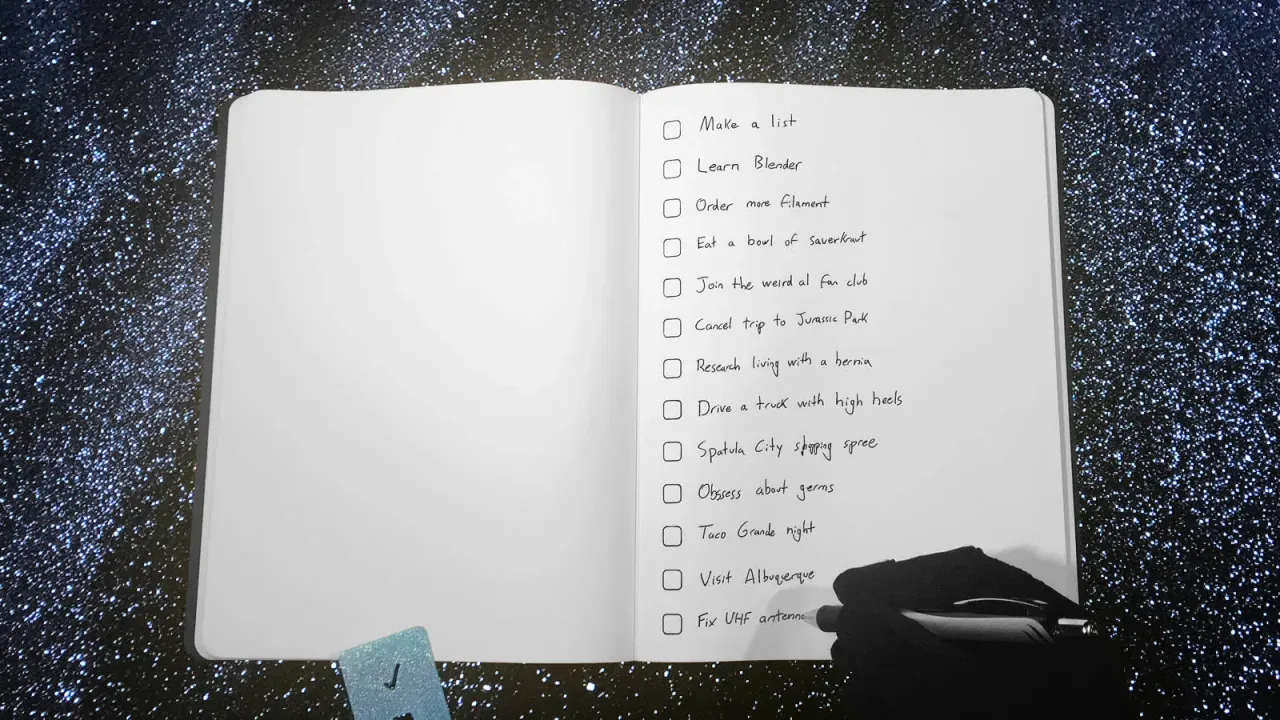 Make a list
Learn Blender
Order more filament
Eat a bowl of sauerkraut
Join the weird al fan club
Cancel trip to Jurassic Park
Research living with a hernia
Drive a truck with high heels
Spatula City shopping spree
Obssess about germs
Taco Grande night
Visit Albuquerque
Fix UHF antenna